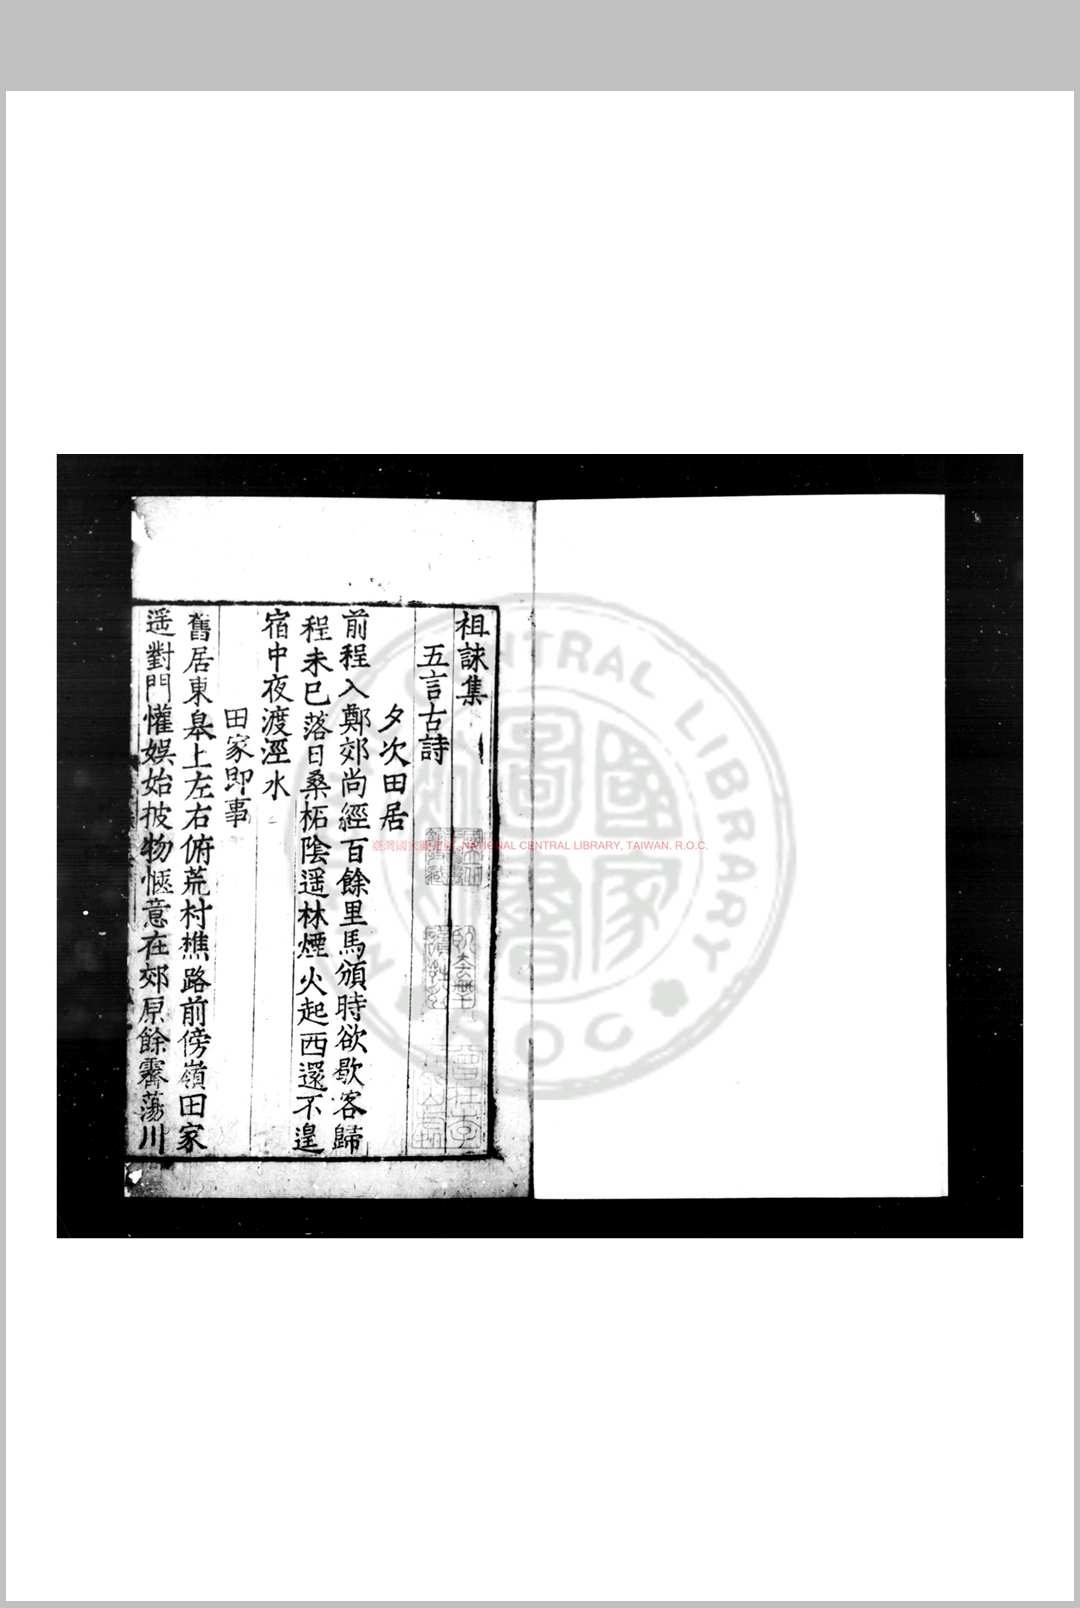 祖詠集
五言古詩
夕次田居
前程入鄭郊尚經百餘里馬煩時欲歇客歸
程未已落日桑柘陰遥林煙火起西還不遑
宿中夜渡涇水
田家即事
舊居東皋上左右俯荒村樵路前傍嶺田家
遥對門懽娯始披物愜意在郊原餘霽蕩川
臺灣國家圖書館, NATIONAL CENTRAL LIBRARY, TAIWAN. R.O.C.
國家圖書
CENTRAL LIBRARY
ROC